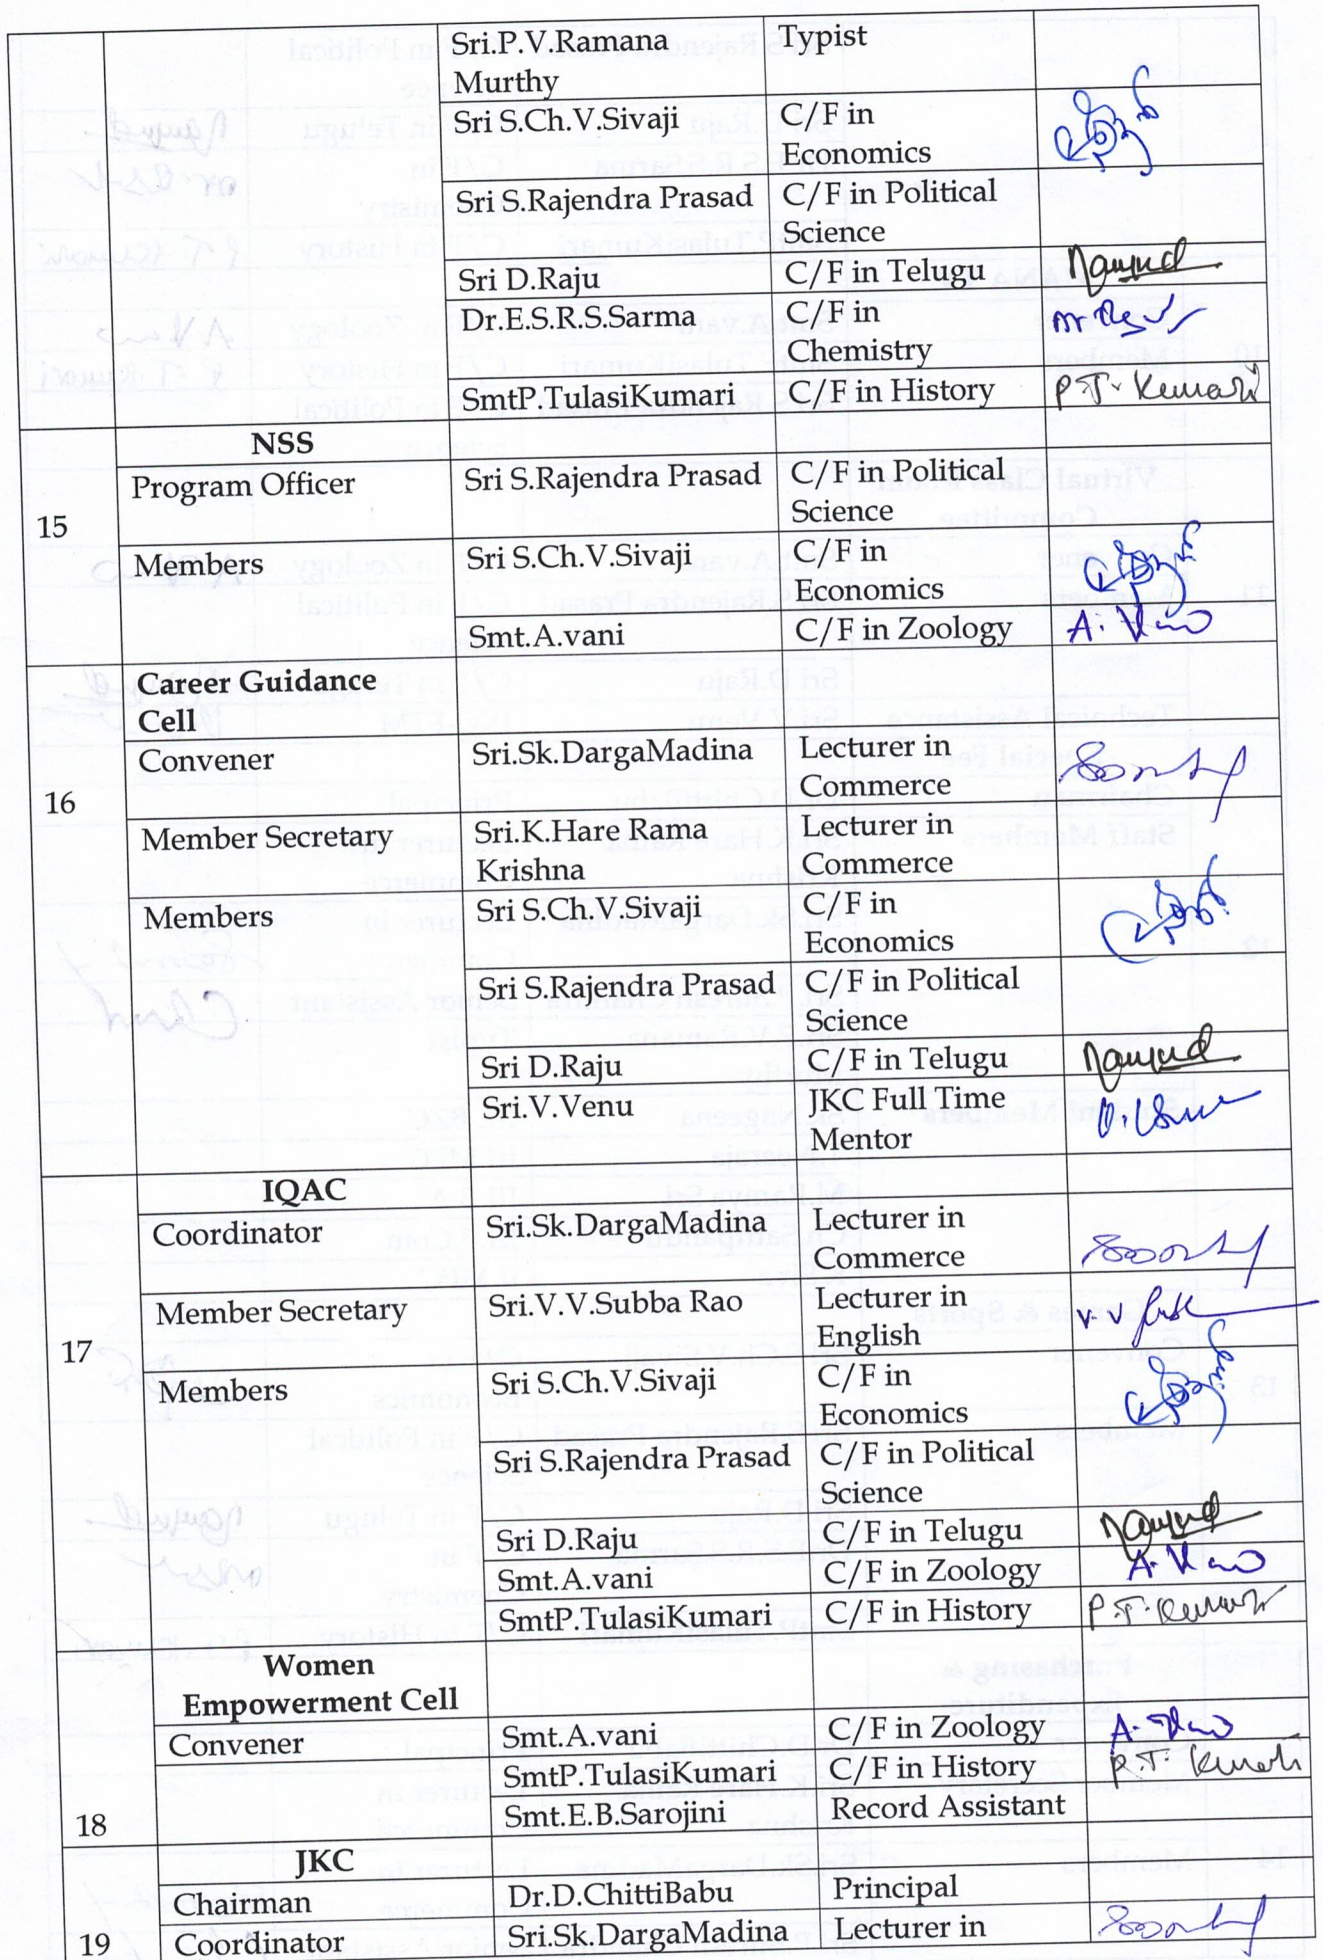 Sri.P V.Ramana Typist
Murthy
Sri S.Ch.V.Sivaji C/F in
Economics
Sri S.Rajendra Prasad C/F in Political
Science
Sri D.Raju C/F in Telugu
Dr.E.S.R.S.Sarma C/F in
Chemistry
SmtP.TulasiKumari C/F in History P.T. Kumari
NSS
Program Officer Sri S.Rajendra Prasad C/F in Political
15 Science
Members Sri S.Ch.V.Sivaji C/F in
Economics
Smt.A.vani C/F in Zoology A. Vani
Career Guidance
Cell
Convener Sri.Sk.DargaMadina Lecturer in
16 Commerce
Member Secretary Sri.K.Hare Rama Lecturer in
Krishna Commerce
Members Sri S.Ch.V.Sivaji C/F in
Economics
Sri S.Rajendra Prasad C/F in Political
Science
Sri D.Raju C/F in Telugu
Sri.V.Venu JKC Full Time
Mentor
IQAC
Coordinator Sri.Sk.DargaMadina Lecturer in
Commerce
Member Secretary Sri.V.V.Subba Rao Lecturer in
17 English
Members Sri S.Ch.V.Sivaji C/F in
Economics
Sri S.Rajendra Prasad C/F in Political
Science
Sri D.Raju C/F in Telugu
Smt.A.vani C/F in Zoology A. Vani
SmtP.TulasiKumari C/F in History P.T. Kumari
Women
Empowerment Cell
Convener Smt.A.vani C/F in Zoology A. Vani
SmtP.TulasiKumari C/F in History P.T. Kumari
18 Smt.E.B.Sarojini Record Assistant
JKC
Chairman Dr.D.ChittiBabu Principal
19 Coordinator Sri.Sk.DargaMadina Lecturer in